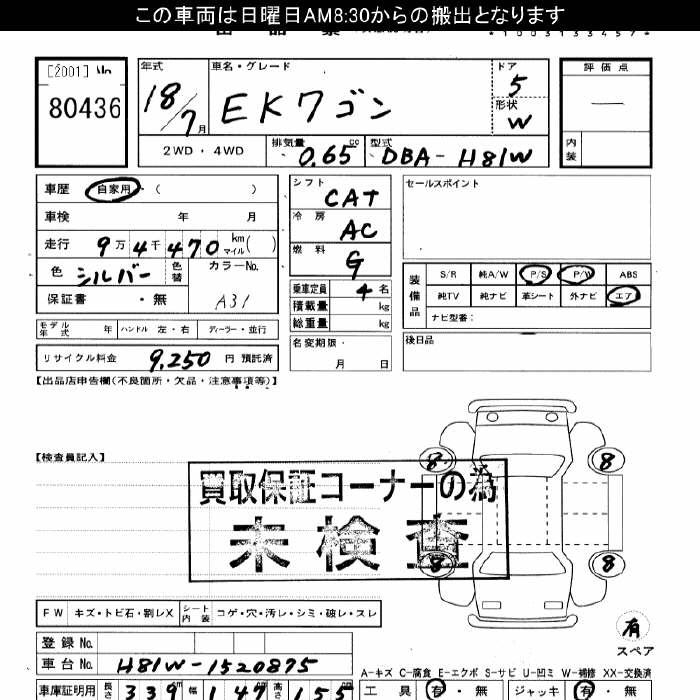 この車両は日曜日AM8:30からの搬出となります
*1003133457*
[2001] No
80436
年式 車名・グレード ドア 評価点
18/7月 EKワゴン 5
形状 W
2WD・4WD 排気量 0.65 cc 型式 DBA- H81W 内装
車歴 自家用 ( )
車検 年 月
走行 9万4千470 km マイル ( )
色 シルバー 色替 カラーNo. A31
保証書 ・無
モデル年式 年 ハンドル 左・右 ディーラー・並行
リサイクル料金 9,250 円 預託済
シフト CAT
冷房 AC
燃料 G
乗車定員 4 名
積載量 kg
総重量 kg
名変期限・ 月 日
セールスポイント
装備品 S/R 純A/W P/S P/W ABS
純TV 純ナビ 革シート 外ナビ エア
ナビ型番:
後日品
【出品店申告欄(不良箇所・欠品・注意事項等)】
【検査員記入】
買取保証コーナーの為
未検査
8 8
8 8
有
スペア
FW キズ・トビ石・割レX シート内装 コゲ・穴・汚レ・シミ・破レ・スレ
登録 No.
車台 No. H81W-1520875
車庫証明用 長さ 339 幅 147 高さ 155
A-キズ C-腐食 E-エクボ S-サビ U-凹ミ W-補修 XX-交換済
工具 有・無 ジャッキ 有・無